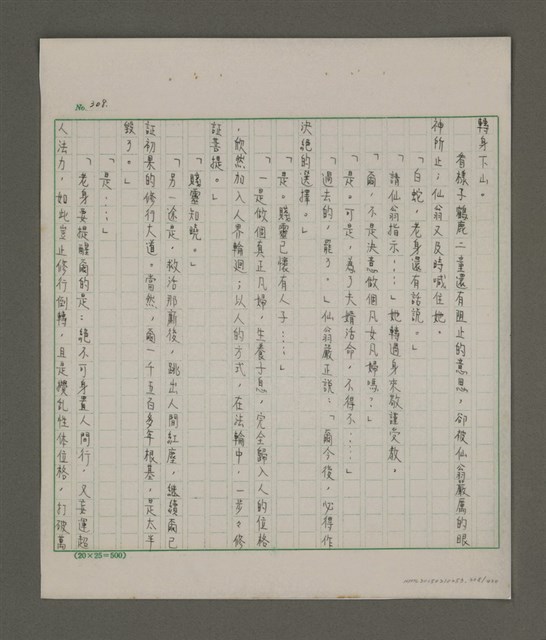 No. 308.
轉身下山。
看樣子鶴鹿二童還有阻止的意思，卻被仙翁嚴厲的眼
神所止；仙翁又及時喊住她。
「白蛇，老身還有話說。」
「請仙翁指示……」她轉過身來敬謹受教。
「爾，不是決意做個凡女凡婦嗎？」
「是。可是，為了夫婿活命，不得不……」
「過去的，罷了。」仙翁嚴正說：「爾今後，必得作
決絕的選擇。」
「是。賤靈已懷有人子……」
「一是做個真正凡婦，生養子息，完全歸入人的位格
，欣然加入人界輪迴；以人的方式，在法輪中，一步。修
証菩提。」
「賤靈知曉。」
「另一途是，救活那廝後，跳出人間紅塵，繼續爾已
証初果的修行大道。當然，爾一千五百多年根基，是太半
毀了。」
「是……」
「老身要提醒爾的是：絕不可身置人間行，又妄運超
人法力，如此豈止修行倒轉，且是攪乱性体位格，打破萬
(20×25=500)